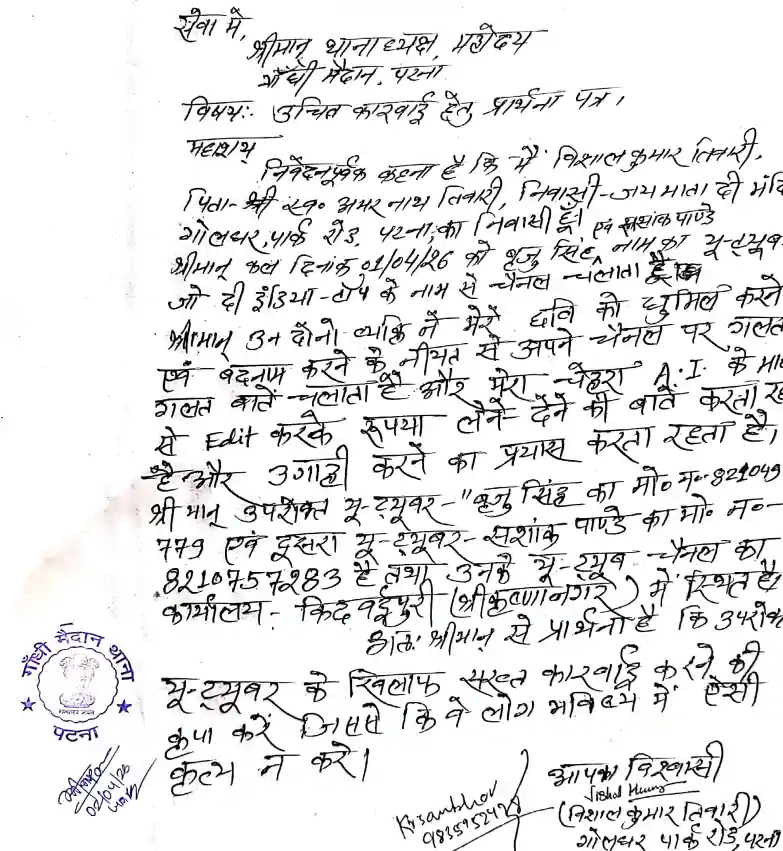 सेवा में,
श्रीमान् थानाध्यक्ष, महोदय
गाँधी मैदान, पटना
विषय:- उचित कारवाई हेतु प्रार्थना पत्र,
महाशय
निवेदनपूर्वक कहना है कि मैं विशाल कुमार तिवारी,
पिता- श्री स्व० अमर नाथ तिवारी, निवासी- जय माता दी मंदि
गोलघर, पार्क रोड, पटना, का निवासी हूँ। एवं सशांक पाण्डे
श्रीमान् कल दिनांक 01/04/26 को सिंह नाम का यू-ट्यूब
जो दी इंडिया टोप के नाम से चैनल चलाता है
श्रीमान् उन दोनो व्यक्ति ने मेरे छवि को धुमिल करने
एवं बदनाम करने के नीयत से अपने चैनल पर गलत
गलत बाते चलाता है और मेरा चेहरा A.I. के मा
से Edit करके रूपया लेने-देने की बाते करता र
है और उगाही करने का प्रयास करता रहता है।
श्रीमान् उपरोक्त यू-ट्यूबर- सिंह का मो० न०- 821049
779 एवं दूसरा यू-ट्यूबर- सशांक पाण्डे का मो० न०-
8210757283 है तथा उनके यू-ट्यूब चैनल का
कार्यालय- किदवईपुरी (श्रीकृष्णानगर) में स्थित है।
अतः श्रीमान् से प्रार्थना है कि उपरोक
यू-ट्यूबर के खिलाफ सख्त कारवाई करने की
कृपा करें जिससे कि वे लोग भविष्य में ऐसी
कृत्य न करे।
गाँधी मैदान थाना
पटना
02/04/26
आपका विश्वासी
(विशाल कुमार तिवारी)
गोलघर पार्क रोड, पटना